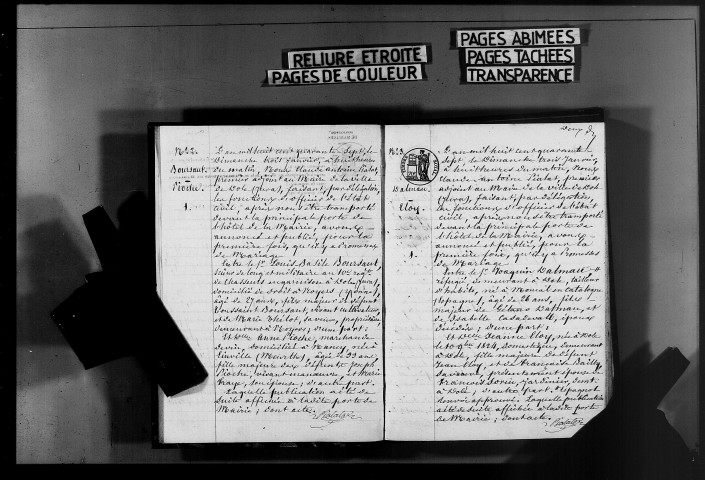 RELIURE ETROITE
PAGES DE COULEUR
PAGES ABIMEES
PAGES TACHEES
TRANSPARENCE
N° 2.
Boussaut
Pioche.
1.
L'an mil huit cent quarante-sept, le
Dimanche trois janvier, à huit heures
du matin, Nous Claude Antoine
premier adjoint au Maire de la ville
de Dole (Jura), faisant, par délégation,
les fonctions d'officier de l'état
civil, après nous être transporté
devant la principale porte de
l'hôtel de la Mairie, avons
annoncé et publié, pour la
première fois, qu'il y a Promesse
de Mariage
Entre le Sr Louis Basile Boussaut,
de chasseurs en garnison à Dole (Jura),
domicilié de droit à Noyers
âgé de 27 ans, fils majeur de défunt
Toussaint Boussaut, vivant cultivateur,
et de Marie Thélot, sa veuve, propriétaire,
demeurant à Noyers; d'une part:
Et Delle Anne Pioche, marchande
de vin, domiciliée à Nancy, née à
Lunéville (Meurthe), âgée de 33 ans,
fille majeure des défunts Joseph
Pioche, vivant manoeuvre, et Marie
d'autre part.
Laquelle publication a été de
suite affichée à ladite porte de
Mairie; dont acte.
N° 3
Dalmau
Cloy
1.
L'an mil huit cent quarante-
sept, le Dimanche trois janvier,
à huit heures du matin, Nous
Claude Antoine premier
adjoint au Maire de la ville de Dole
(Jura), faisant, par délégation,
les fonctions d'officier de l'état
civil, après nous être transporté
devant la principale porte de
l'hôtel de la Mairie, avons
annoncé et publié, pour la
première fois, qu'il y a Promesse
de Mariage
Entre le Sr Joaquin Dalmau
réfugié, demeurant à Dole, tailleur
d'habits, né à en Catalogne
(Espagne), âgé de 26 ans, fils
majeur de Dalmau, et
de Isabelle Casadevall, époux
décédés; d'une part:
Et Delle Jeanne Cloy, née à Dole
le 10 9bre 1824, domestique, demeurant
à Dole, fille majeure de défunt
Jean Cloy, et de Françoise Bailly,
sa veuve, présentement épouse de
François jardinier,
à Dole; d'autre part.
Laquelle publication
a été de suite affichée à ladite porte
de Mairie; dont acte.